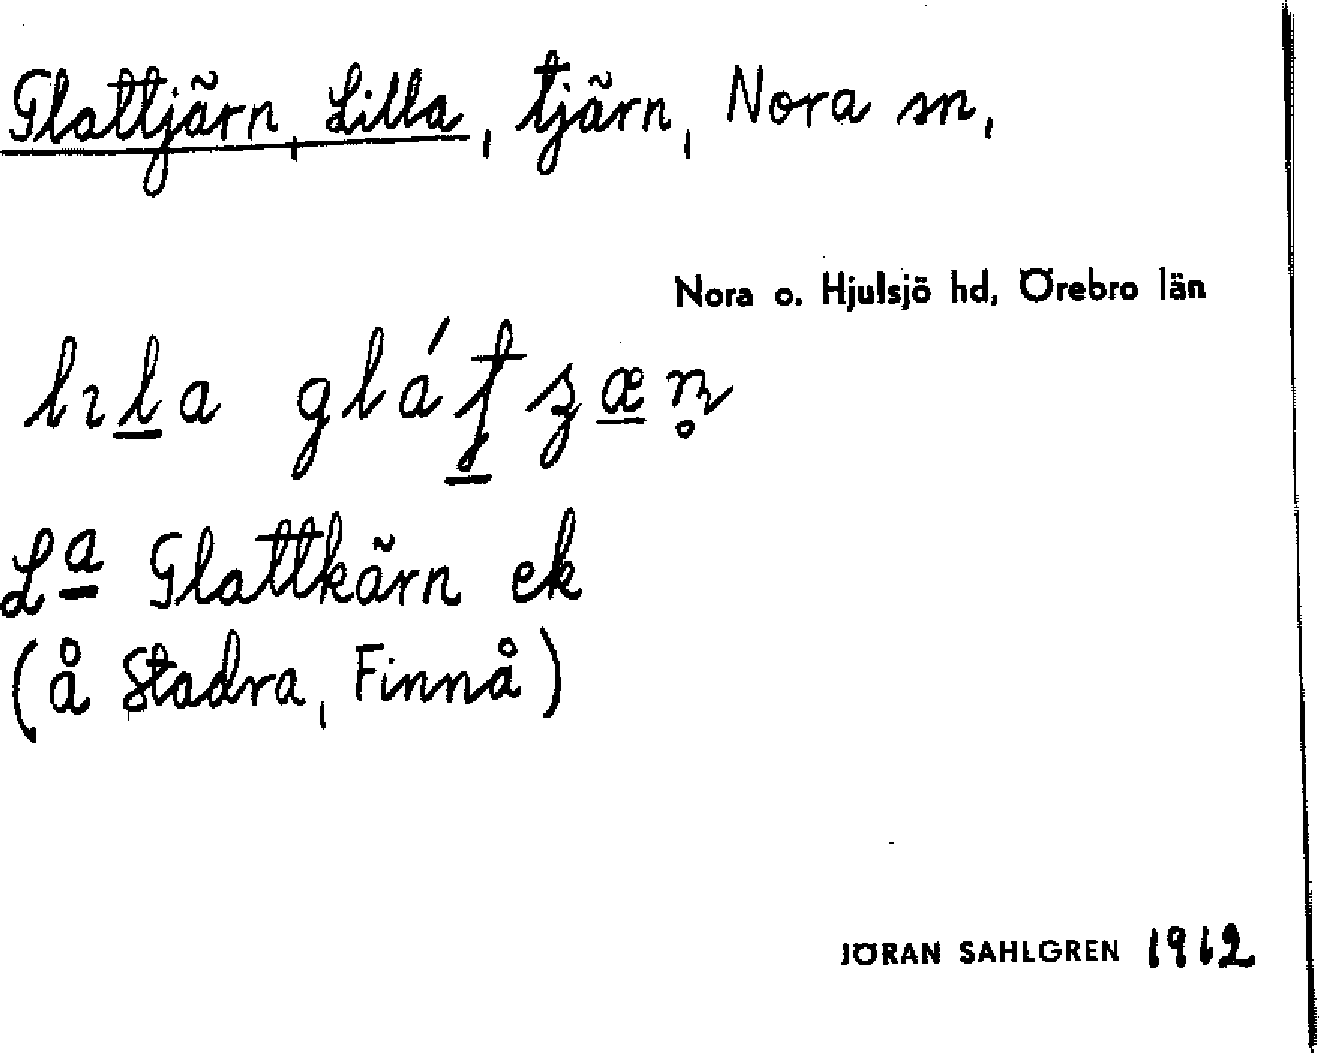 Glattjärn, Lilla, tjärn, Nora sn,
Nora o. Hjulsjö hd, Örebro län
Lª Glattkärn ek
(å Stadra, Finnå)
JÖRAN SAHLGREN 1912